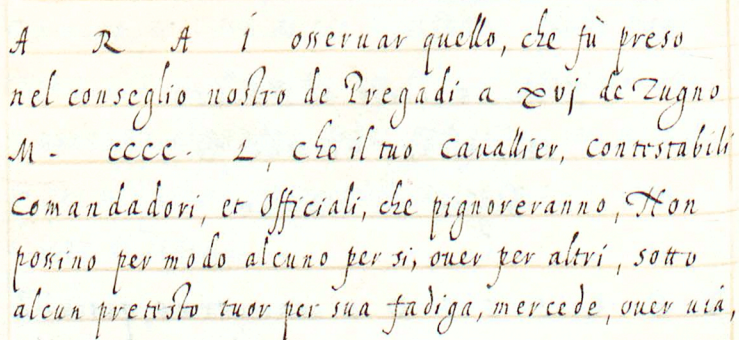 A R A I osseruar quello, che fù preso
nel conseglio nostro de Pregadi a xvj de Zugno
M. CCCC. L, che il tuo Cauallier, contestabili
Comandadori, et Officiali, che pignoreranno, Non
possino per modo alcuno per si, ouer per altri, sotto
alcun pretesto tuor per sua fadiga, mercede, ouer uia,